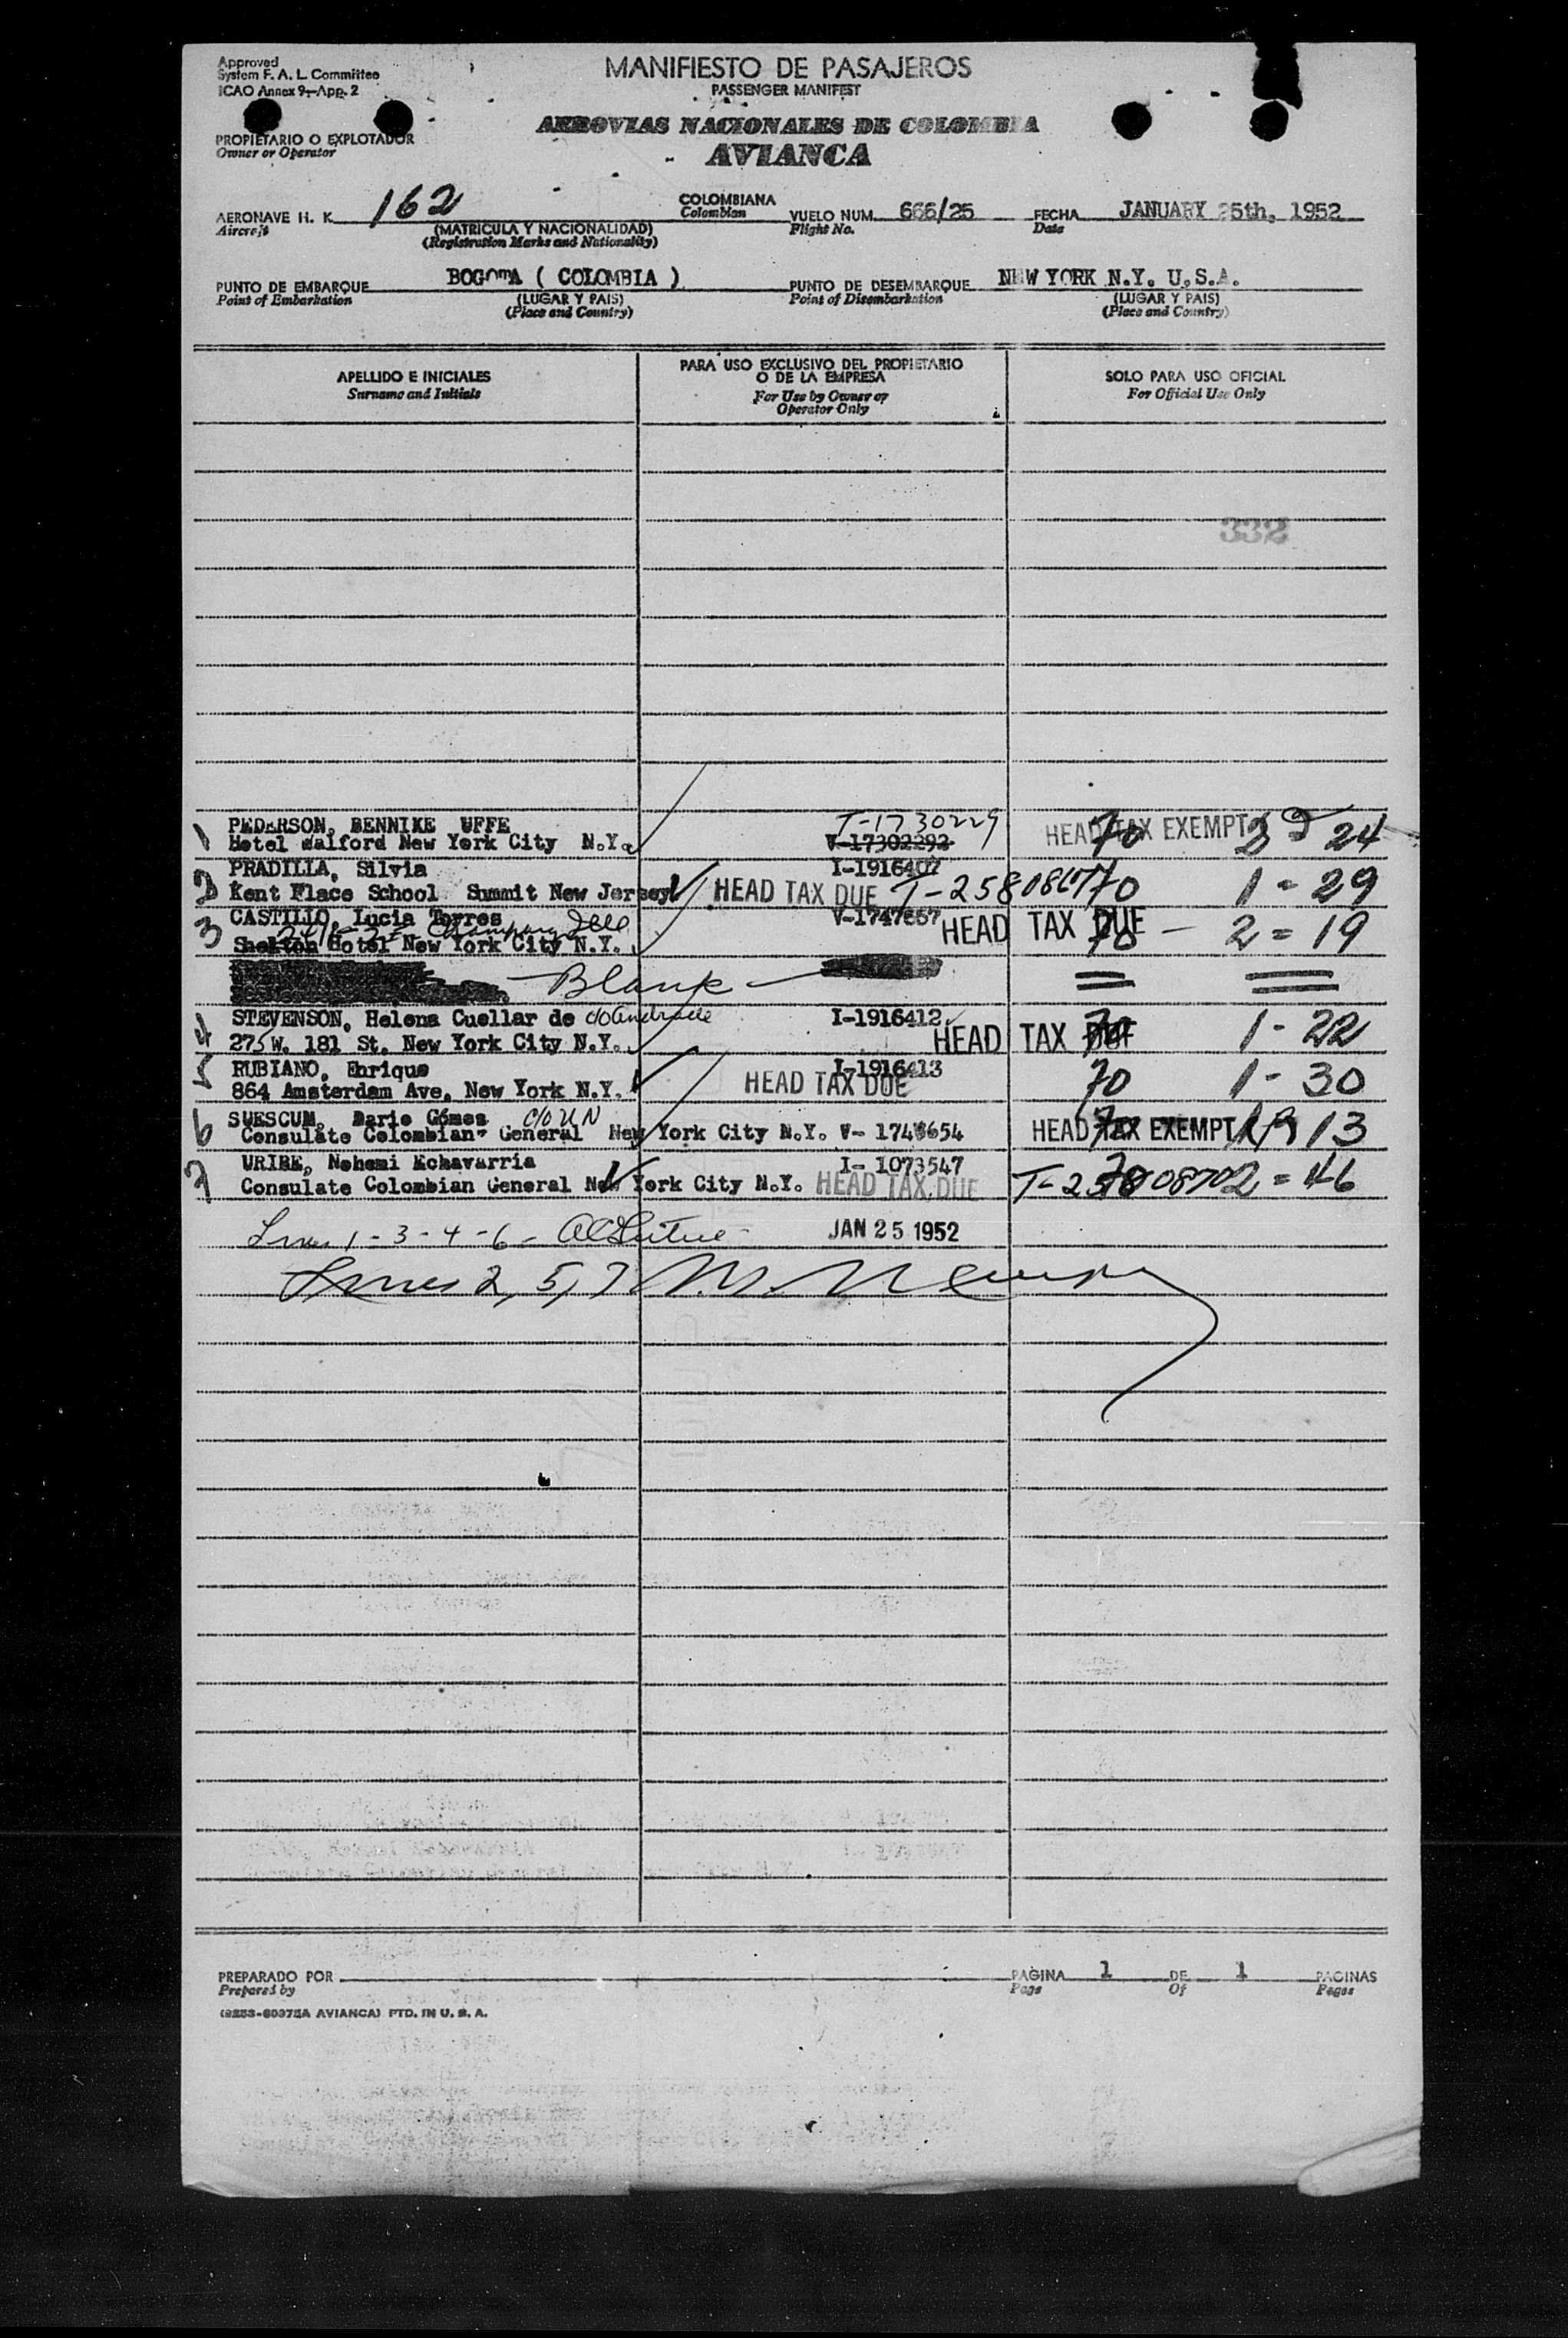 Approved
System F. A. L. Committee
ICAO Annex 9-App. 2
MANIFIESTO DE PASAJEROS
PASSENGER MANIFEST
PROPIETARIO O EXPLOTADOR
Owner or Operator
AEROVIAS NACIONALES DE COLOMBIA
AVIANCA
AERONAVE H. K. 162 COLOMBIANA VUELO NUM. 666/25 FECHA JANUARY 25th, 1952
Aircraft Colombian Flight No. Date
(MATRICULA Y NACIONALIDAD)
(Registration Marks and Nationality)
PUNTO DE EMBARQUE BOGOTA ( COLOMBIA ) PUNTO DE DESEMBARQUE NEW YORK N.Y. U.S.A.
Point of Embarkation (LUGAR Y PAIS) Point of Disembarkation (LUGAR Y PAIS)
(Place and Country) (Place and Country)
APELLIDO E INICIALES PARA USO EXCLUSIVO DEL PROPIETARIO O DE LA EMPRESA SOLO PARA USO OFICIAL
Surname and Initials For Use by Owner or Operator Only For Official Use Only
332
1 PEDERSON, BENNIKE UFFE T-1730229 HEAD TAX EXEMPT 70 24
Hotel Walford New York City N.Y. V-17302292
2 PRADILLA, Silvia I-1916407
Kent Place School Summit New Jersey HEAD TAX DUE 70 1-29
3 CASTILLO, Lucia Torres V-1747657 HEAD TAX DUE 70 - 2=19
Shelton Hotel New York City N.Y.
Blank
4 STEVENSON, Helena Cuellar de c/o Andrade I-1916412 HEAD TAX DUE 70 1-22
275 W. 181 St. New York City N.Y.
5 RUBIANO, Enrique I-1916413
864 Amsterdam Ave. New York N.Y. HEAD TAX DUE 70 1-30
6 SUESCUM, Dario Gómes c/o UN
Consulate Colombian General New York City N.Y. HEAD TAX EXEMPT 70 13
7 URIBE, Nohemi Echavarria I-1073547
Consulate Colombian General New York City N.Y. HEAD TAX DUE 70 2=46
Lines 1-3-4-6- JAN 25 1952
Lines 2, 5, 7
PREPARADO POR PAGINA 1 DE 1 PAGINAS
Prepared by Page Of Pages
(9253-60375A AVIANCA) PTD. IN U. S. A.